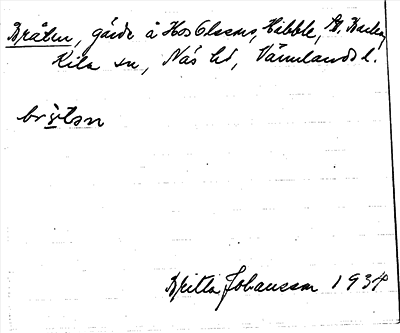 Bråten, gårde å Hos Olssons, Häbble,
Kila sn, Näs hd, Värmlands l.
brå̤tsn
Britta Johansson 1934